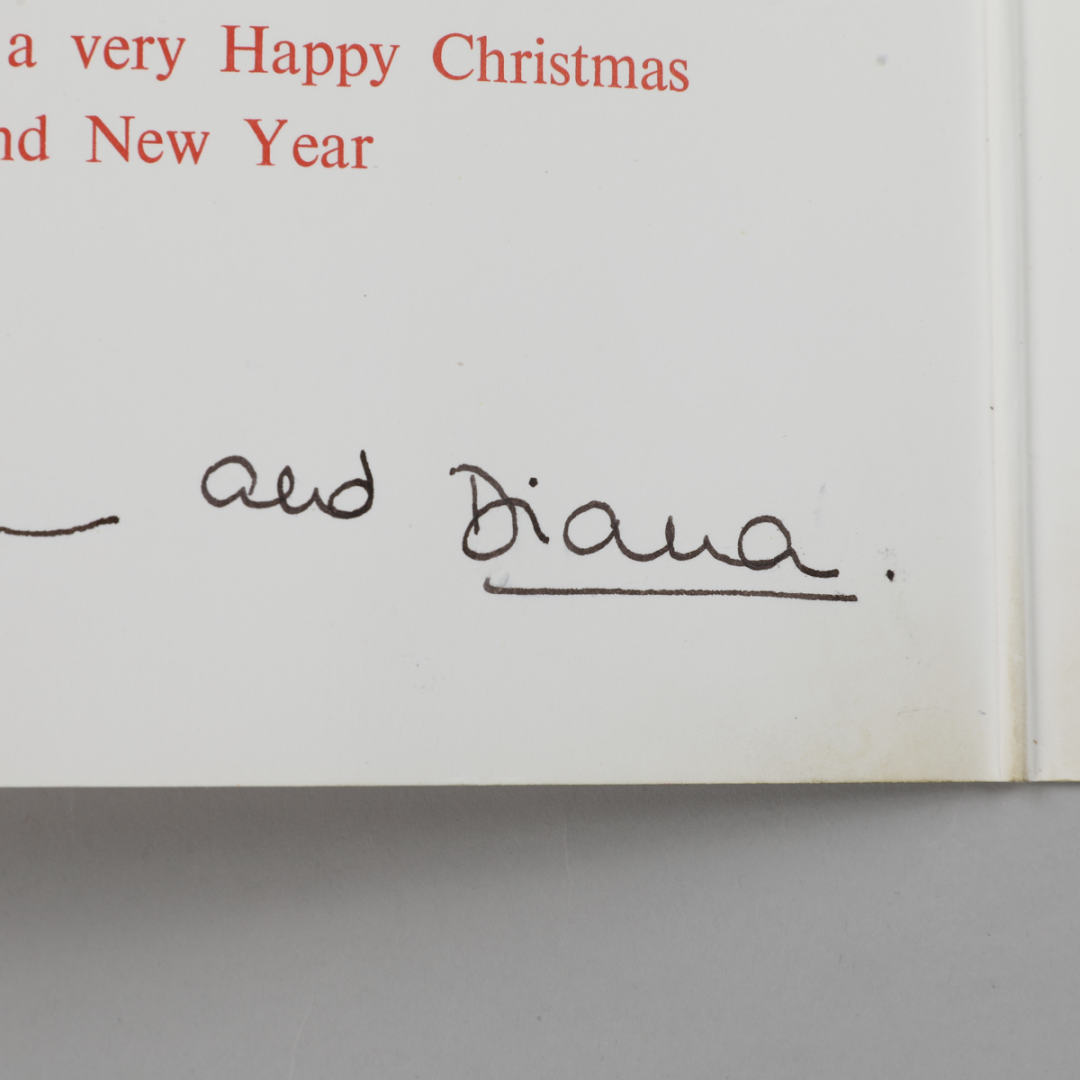 a very Happy Christmas
nd New Year
and Diana.